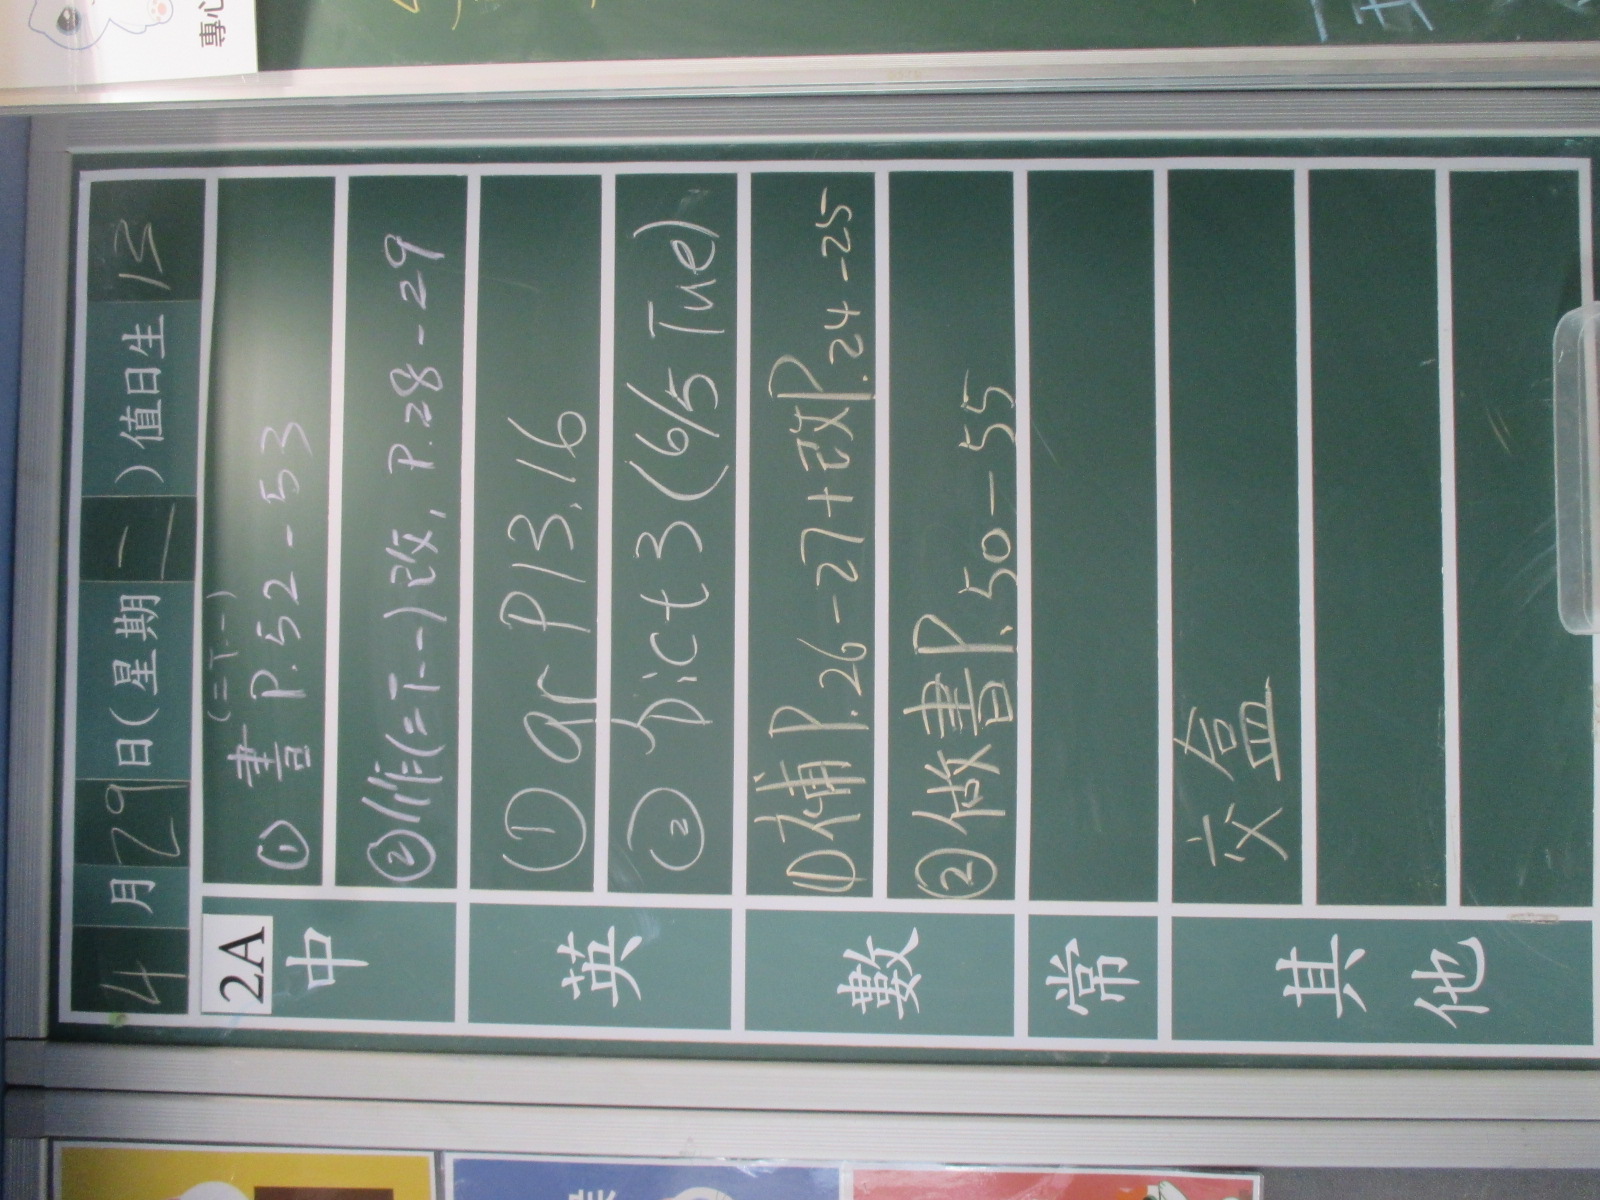 4月29日(星期二)值日生 13
2A
中
(二下一)
① 書 P.52-53
②作(二下一)改, P.28-29
英
① gr P13.16
② Dict 3 (6/5 Tue)
數
①補P.26-27+改P.24-25
②做書P.50-55
常
其他
交盒
專心